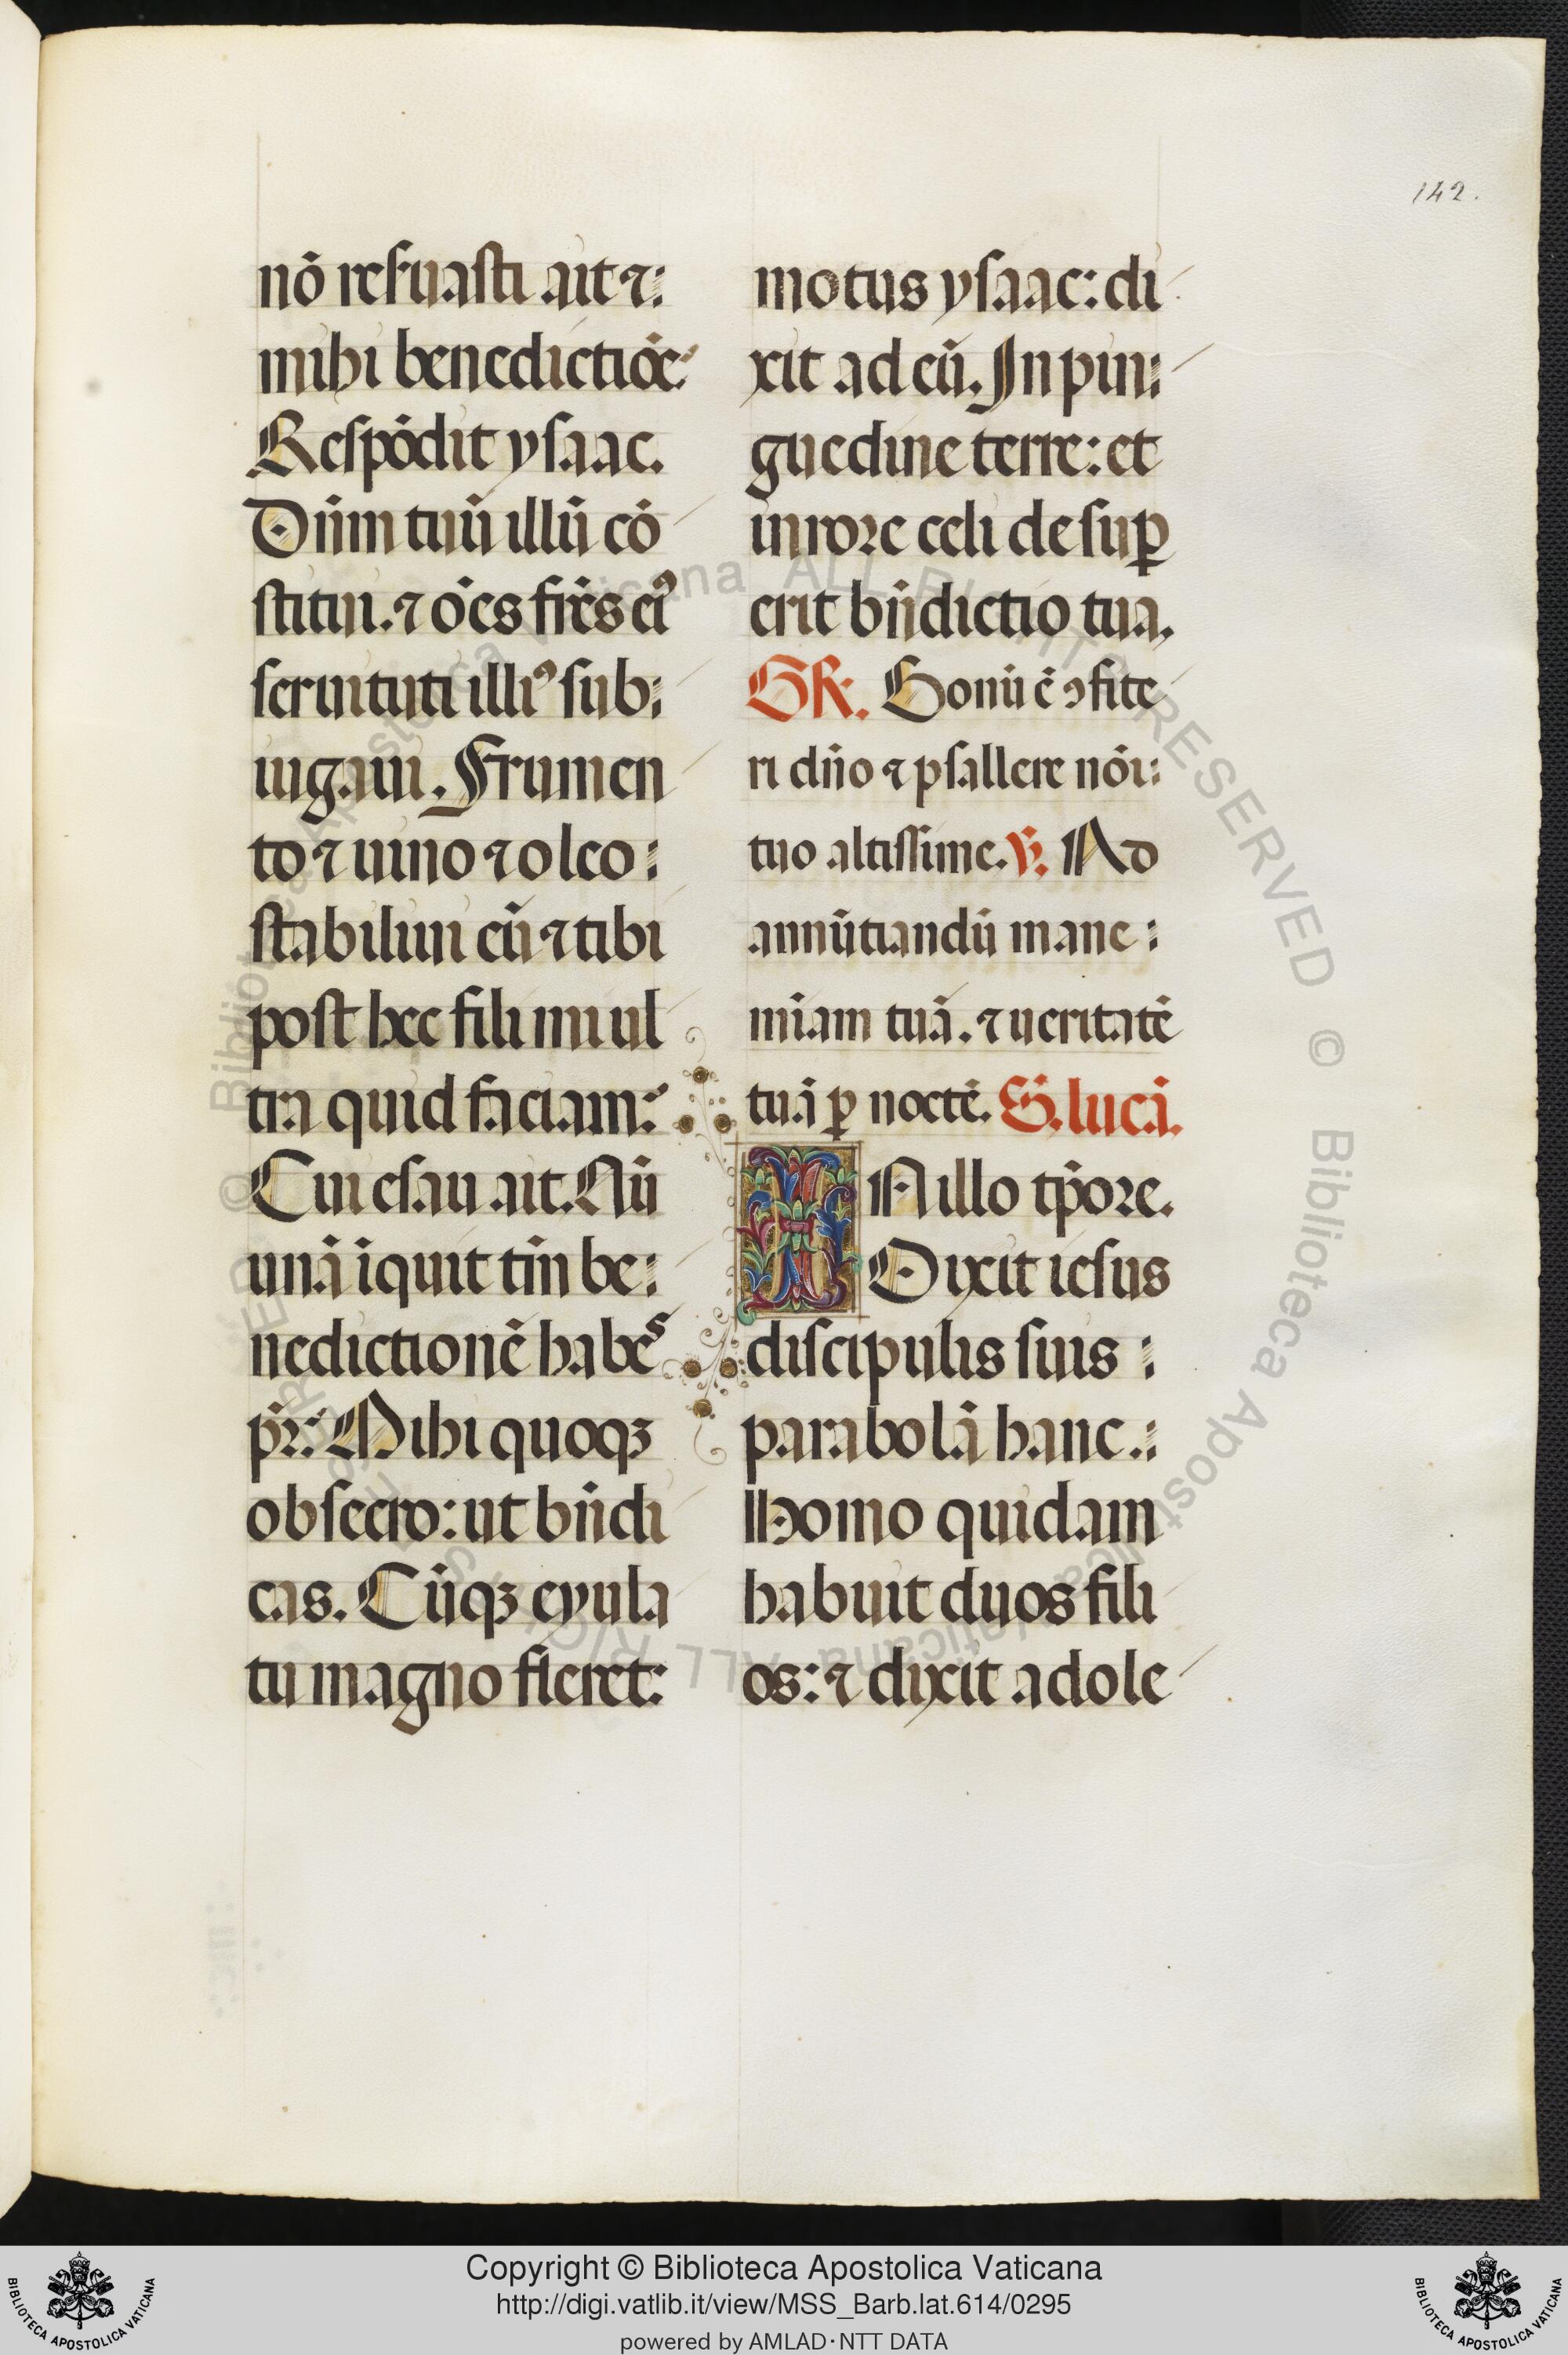 142.
nō res̄uasti ait ⁊:
mihi benedictiōe:
Respōdit ysaac.
Dn̄m tuū illū cō
stitui. ⁊ o̅es fr̄es eiꝰ
seruituti illiꝰ sub:
iugaui. Frumen
to ⁊ uino ⁊ oleo:
stabiliui eū ⁊ tibi
post hec fili mi ul
tra quid faciam:
Cui esau ait. Nū
unā īquit tm̄ be:
nedictionē habeˢ
pr̄: Mihi quoqꝫ
obsecro: ut bn̄di
cas. Cūqꝫ eyula
tu magno fleret:
motus ysaac: di
xit ad eū. In pin:
guedine terre: et
in rore celi desuꝑ
erit bn̄dictio tua.
GR. Bonū ē ꝯfite
ri dn̄o ⁊ psallere nōi:
tuo altissime. ℣. Ad
annūtiandū mane:
mīam tuā. ⁊ ueritatē
tuā ꝑ noctē. S. lucā.
IN illo tp̄ore.
Dixit iesus
discipulis suis:
parabolā hanc.:
Homo quidam
habuit duos fili
os: ⁊ dixit adole
Copyright © Biblioteca Apostolica Vaticana
http://digi.vatlib.it/view/MSS_Barb.lat.614/0295
powered by AMLAD·NTT DATA
BIBLIOTECA APOSTOLICA VATICANA
BIBLIOTECA APOSTOLICA VATICANA